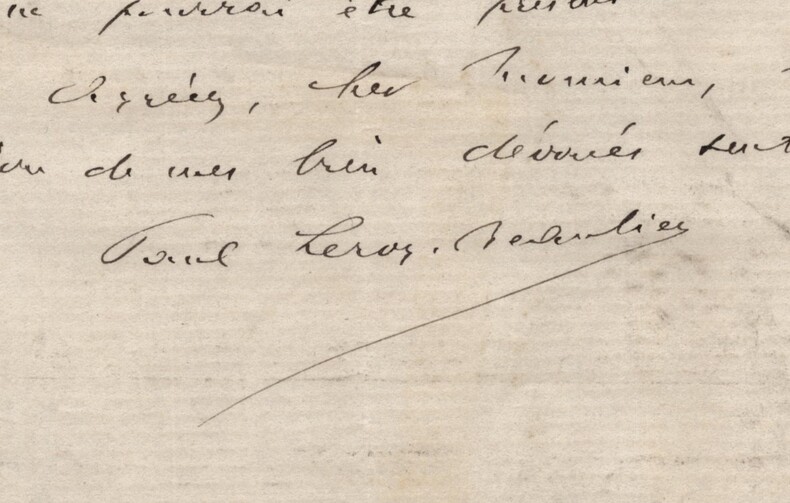 ne pourrai être
Agréez, cher Monsieur,
de mes bien dévoués sent
Paul Leroy-Beaulieu